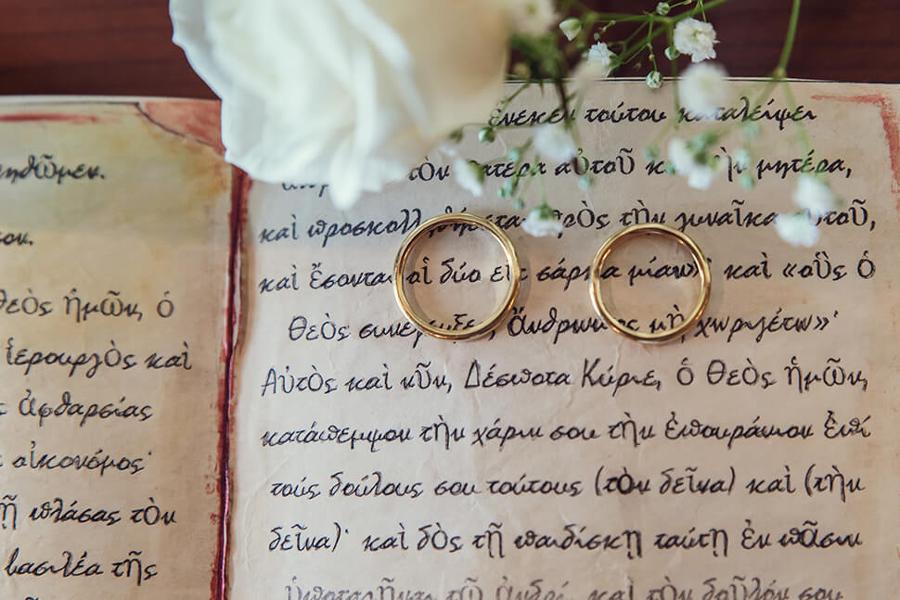 ηθῶμεν.
θεὸς ἡμῶν, ὁ
ἱερουργὸς καὶ
ἀφθαρσίας
οἰκονόμος·
πλάσας τὸν
βασιλέα τῆς
ἕνεκεν τούτου καταλείψει
τὸν πατέρα αὐτοῦ μητέρα,
καὶ πρὸς τὴν γυναῖκα αὐτοῦ,
καὶ ἔσονται οἱ δύο εἰς σάρκα μίαν» καὶ «οὓς ὁ
Θεὸς συνέζευξε, ἄνθρωπος μὴ χωριζέτω»·
Αὐτὸς καὶ νῦν, Δέσποτα Κύριε, ὁ Θεὸς ἡμῶν,
κατάπεμψον τὴν χάριν σου τὴν ἐπουράνιον ἐπί
τούς δούλους σου τούτους (τὸν δεῖνα) καὶ (τὴν
δεῖνα)· καὶ δὸς τῇ παιδίσκῃ ταύτῃ ἐν πᾶσιν
ὑποταγῆναι τῷ ἀνδρί, καὶ τὸν δοῦλόν σου